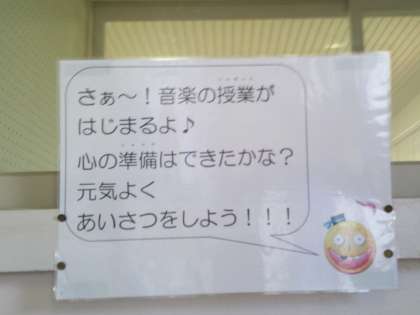 さぁ～！音楽の授業が
はじまるよ♪
心の準備はできたかな？
元気よく
あいさつをしよう！！！